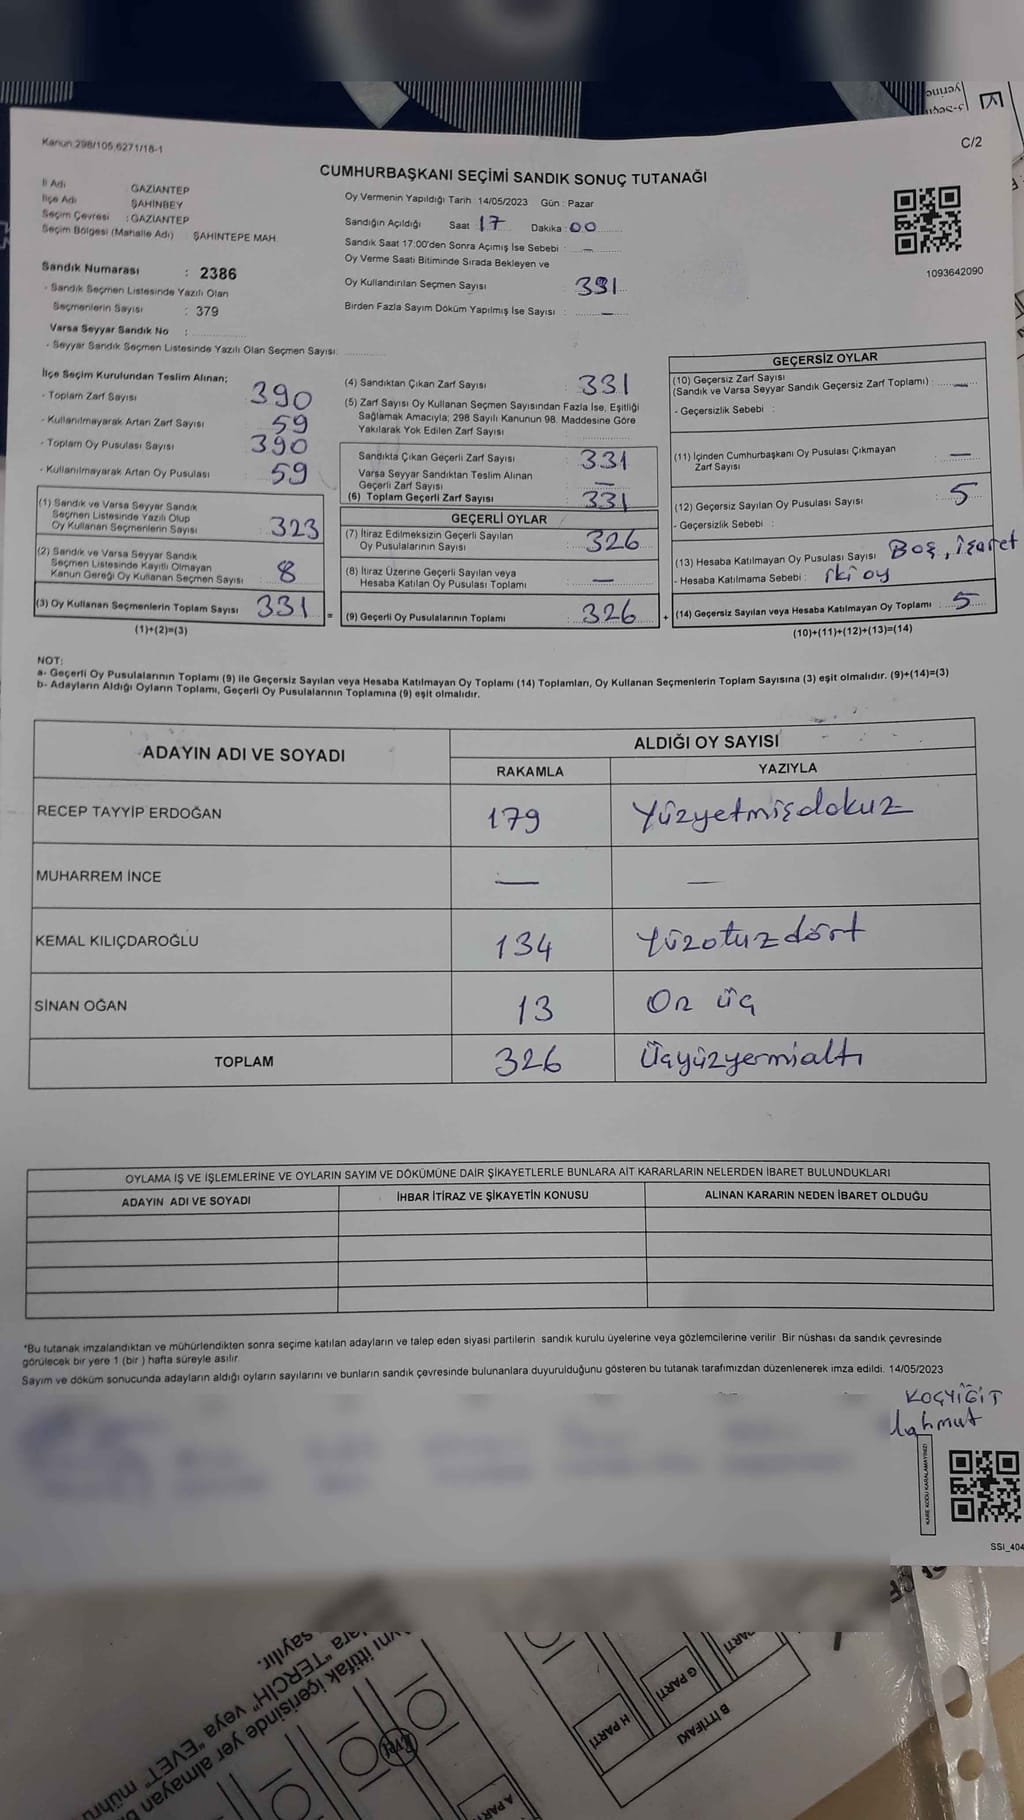 Kanun:298/105,6271/18-1
C/2
CUMHURBAŞKANI SEÇİMİ SANDIK SONUÇ TUTANAĞI
İl Adı GAZİANTEP
İlçe Adı ŞAHİNBEY
Seçim Çevresi : GAZİANTEP
Seçim Bölgesi (Mahalle Adı) : ŞAHİNTEPE MAH.
Sandık Numarası : 2386
- Sandık Seçmen Listesinde Yazılı Olan
Seçmenlerin Sayısı : 379
Varsa Seyyar Sandık No :
- Seyyar Sandık Seçmen Listesinde Yazılı Olan Seçmen Sayısı:
Oy Vermenin Yapıldığı Tarih : 14/05/2023 Gün : Pazar
Sandığın Açıldığı Saat 17 Dakika : 00
Sandık Saat 17:00'den Sonra Açımış İse Sebebi : —
Oy Verme Saati Bitiminde Sırada Bekleyen ve
Oy Kullandırılan Seçmen Sayısı 331
Birden Fazla Sayım Döküm Yapılmış İse Sayısı : —
1093642090
İlçe Seçim Kurulundan Teslim Alınan;
- Toplam Zarf Sayısı : 390
- Kullanılmayarak Artan Zarf Sayısı : 59
- Toplam Oy Pusulası Sayısı : 390
- Kullanılmayarak Artan Oy Pusulası : 59
(1) Sandık ve Varsa Seyyar Sandık
Seçmen Listesinde Yazılı Olup
Oy Kullanan Seçmenlerin Sayısı : 323
(2) Sandık ve Varsa Seyyar Sandık
Seçmen Listesinde Kayıtlı Olmayan
Kanun Gereği Oy Kullanan Seçmen Sayısı : 8
(3) Oy Kullanan Seçmenlerin Toplam Sayısı : 331 =
(1)+(2)=(3)
(4) Sandıktan Çıkan Zarf Sayısı : 331
(5) Zarf Sayısı Oy Kullanan Seçmen Sayısından Fazla İse, Eşitliği
Sağlamak Amacıyla; 298 Sayılı Kanunun 98. Maddesine Göre
Yakılarak Yok Edilen Zarf Sayısı :
Sandıkta Çıkan Geçerli Zarf Sayısı : 331
Varsa Seyyar Sandıktan Teslim Alınan
Geçerli Zarf Sayısı : —
(6) Toplam Geçerli Zarf Sayısı : 331
GEÇERLİ OYLAR
(7) İtiraz Edilmeksizin Geçerli Sayılan
Oy Pusulalarının Sayısı : 326
(8) İtiraz Üzerine Geçerli Sayılan veya
Hesaba Katılan Oy Pusulası Toplamı : —
(9) Geçerli Oy Pusulalarının Toplamı : 326 +
GEÇERSİZ OYLAR
(10) Geçersiz Zarf Sayısı
(Sandık ve Varsa Seyyar Sandık Geçersiz Zarf Toplamı) : —
- Geçersizlik Sebebi :
(11) İçinden Cumhurbaşkanı Oy Pusulası Çıkmayan
Zarf Sayısı : —
(12) Geçersiz Sayılan Oy Pusulası Sayısı : 5
- Geçersizlik Sebebi :
(13) Hesaba Katılmayan Oy Pusulası Sayısı Boş, işaret
- Hesaba Katılmama Sebebi : iki oy
(14) Geçersiz Sayılan veya Hesaba Katılmayan Oy Toplamı : 5
(10)+(11)+(12)+(13)=(14)
NOT:
a- Geçerli Oy Pusulalarının Toplamı (9) ile Geçersiz Sayılan veya Hesaba Katılmayan Oy Toplamı (14) Toplamları, Oy Kullanan Seçmenlerin Toplam Sayısına (3) eşit olmalıdır. (9)+(14)=(3)
b- Adayların Aldığı Oyların Toplamı, Geçerli Oy Pusulalarının Toplamına (9) eşit olmalıdır.
ADAYIN ADI VE SOYADI ALDIĞI OY SAYISI
RAKAMLA YAZIYLA
RECEP TAYYİP ERDOĞAN 179 Yüzyetmişdokuz
MUHARREM İNCE — —
KEMAL KILIÇDAROĞLU 134 Yüzotuzdört
SİNAN OĞAN 13 On üç
TOPLAM 326 Üçyüzyermialtı
OYLAMA İŞ VE İŞLEMLERİNE VE OYLARIN SAYIM VE DÖKÜMÜNE DAİR ŞİKAYETLERLE BUNLARA AİT KARARLARIN NELERDEN İBARET BULUNDUKLARI
ADAYIN ADI VE SOYADI İHBAR İTİRAZ VE ŞİKAYETİN KONUSU ALINAN KARARIN NEDEN İBARET OLDUĞU
*Bu tutanak imzalandıktan ve mühürlendikten sonra seçime katılan adayların ve talep eden siyasi partilerin sandık kurulu üyelerine veya gözlemcilerine verilir. Bir nüshası da sandık çevresinde
görülecek bir yere 1 (bir ) hafta süreyle asılır.
Sayım ve döküm sonucunda adayların aldığı oyların sayılarını ve bunların sandık çevresinde bulunanlara duyurulduğunu gösteren bu tutanak tarafımızdan düzenlenerek imza edildi. 14/05/2023
KOÇYİĞİT
Mahmut
KARE KODU KARALAMAYINIZ!
SSI_404
sayılır.
"TERCİH" veya
aynı ittifak içerisinde yer almayan
"EVET" mührü
B İTTİFAKI
H PARTİ
G PARTİ
PARTİ
A PARTİ